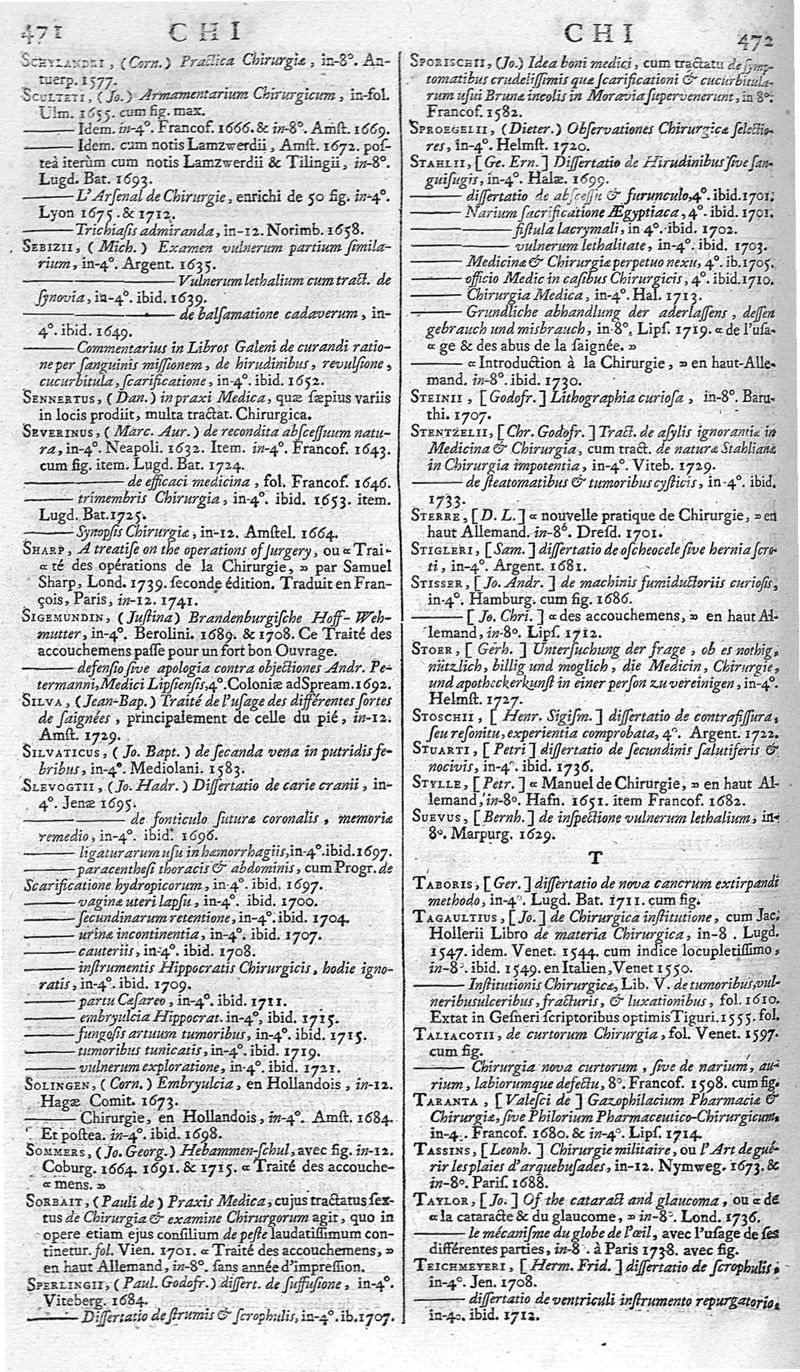 471 CHI
SCHYLANDRI, (Corn.) Practica Chirurgiæ, in-8°. An-
tuerp. 1577.
SCULTETI, (Jo.) Armamentarium Chirurgicum, in-fol.
Ulm. 1655. cum fig. max.
——— Idem. in-4°. Francof. 1666. & in-8°. Amst. 1669.
——— Idem. cum notis Lamzwerdii, Amst. 1672. pos-
teà iterùm cum notis Lamzwerdii & Tilingii, in-8°.
Lugd. Bat. 1693.
——— L'Arsenal de Chirurgie, enrichi de 50 fig. in-4°.
Lyon 1675. & 1712.
——— Trichiasis admiranda, in-12. Norimb. 1658.
SEBIZII, (Mich.) Examen vulnerum partium simila-
rium, in-4°. Argent. 1635.
——— Vulnerum lethalium cum tract. de
synovia, in-4°. ibid. 1639.
——— de balsamatione cadaverum, in-
4°. ibid. 1649.
——— Commentarius in Libros Galeni de curandi ratio-
ne per sanguinis missionem, de hirudinibus, revulsione,
cucurbitula, scarificatione, in-4°. ibid. 1652.
SENNERTUS, (Dan.) in praxi Medica, quæ sæpius variis
in locis prodiit, multa tractat. Chirurgica.
SEVERINUS, (Marc. Aur.) de recondita abscessuum natu-
ra, in-4°. Neapoli. 1632. Item. in-4°. Francof. 1643.
cum fig. item. Lugd. Bat. 1724.
——— de efficaci medicina, fol. Francof. 1646.
——— trimembris Chirurgia, in-4°. ibid. 1653. item.
Lugd. Bat. 1725.
——— Synopsis Chirurgiæ, in-12. Amstel. 1664.
SHARP, A treatise on the operations of surgery, ou « Trai-
« té des opérations de la Chirurgie, » par Samuel
Sharp, Lond. 1739. seconde édition. Traduit en Fran-
çois, Paris, in-12. 1741.
SIGEMUNDIN, (Justina) Brandenburgische Hoff-Weh-
mutter, in-4°. Berolini. 1689. & 1708. Ce Traité des
accouchemens passe pour un fort bon Ouvrage.
——— defensio sive apologia contra objectiones Andr. Pe-
termanni, Medici Lipsiensis, 4°. Coloniæ ad Spream. 1692.
SILVA, (Jean-Bap.) Traité de l'usage des différentes sortes
de saignées, principalement de celle du pié, in-12.
Amst. 1729.
SILVATICUS, (Jo. Bapt.) de secanda vena in putridis fe-
bribus, in-4°. Mediolani. 1583.
SLEVOGTII, (Jo. Hadr.) Dissertatio de carie cranii, in-
4°. Jenæ 1695.
——— de fonticulo suturæ coronalis, memoriæ
remedio, in-4°. ibid. 1696.
——— ligaturarum usu in hæmorrhagiis, in-4°. ibid. 1697.
——— paracenthesi thoracis & abdominis, cum Progr. de
Scarificatione hydropicorum, in-4°. ibid. 1697.
——— vaginæ uteri lapsu, in-4°. ibid. 1700.
——— secundinarum retentione, in-4°. ibid. 1704.
——— urinæ incontinentia, in-4°. ibid. 1707.
——— cauteriis, in-4°. ibid. 1708.
——— instrumentis Hippocratis Chirurgicis, hodie igno-
ratis, in-4°. ibid. 1709.
——— partu Cæsareo, in-4°. ibid. 1711.
——— embryulcia Hippocrat. in-4°, ibid. 1715.
——— fungosis artuum tumoribus, in-4°. ibid. 1715.
——— tumoribus tunicatis, in-4°. ibid. 1719.
——— vulnerum exploratione, in-4°. ibid. 1721.
SOLINGEN, (Corn.) Embryulcia, en Hollandois, in-12.
Hagæ Comit. 1673.
——— Chirurgie, en Hollandois, in-4°. Amst. 1684.
Et postea. in-4°. ibid. 1698.
SOMMERS, (Jo. Georg.) Hebammen-schul, avec fig. in-12.
Coburg. 1664. 1691. & 1715. « Traité des accouche-
« mens. »
SORBAIT, (Pauli de) Praxis Medica, cujus tractatus sex-
tus de Chirurgia & examine Chirurgorum agit, quo in
opere etiam ejus consilium de peste laudatissimum con-
tinetur. fol. Vien. 1701. « Traité des accouchemens, »
en haut Allemand, in-8°. sans année d'impression.
SPERLINGII, (Paul. Godofr.) dissert. de suffusione, in-4°.
Viteberg. 1684.
——— Dissertatio de strumis & scrophulis, in-4°. ib. 1707.
CHI 472
SPORISCHII, (Jo.) Idea boni medici, cum tractatu de symp-
tomatibus crudelissimis quæ scarificationi & cucurbitula-
rum usui Brunæ incolis in Moravia supervenerunt, in 8°.
Francof. 1582.
SPROEGELII, (Dieter.) Observationes Chirurgicæ selectio-
res, in-4°. Helmst. 1720.
STAHLII, [Ge. Ern.] Dissertatio de Hirudinibus sive san-
guisugis, in-4°. Halæ. 1699.
——— dissertatio de abscessu & furunculo, 4°. ibid. 1701.
——— Narium sacrificatione Ægyptiaca, 4°. ibid. 1701.
——— fistula lacrymali, in 4°. ibid. 1702.
——— vulnerum lethalitate, in-4°. ibid. 1703.
——— Medicinæ & Chirurgiæ perpetuo nexu, 4°. ib. 1705.
——— officio Medic in casibus Chirurgicis, 4°. ibid. 1710.
——— Chirurgia Medica, in-4°. Hal. 1713.
——— Grundliche abhandlung der aderlassens, dessen
gebrauch und misbrauch, in-8°. Lips. 1719. « de l'usa-
« ge & des abus de la saignée. »
——— « Introduction à la Chirurgie, » en haut-Alle-
mand. in-8°. ibid. 1730.
STEINII, [Godofr.] Lithographia curiosa, in-8°. Baru-
thi. 1707.
STENTZELII, [Chr. Godofr.] Tract. de asylis ignorantiæ in
Medicina & Chirurgia, cum tract. de natura Stahliana
in Chirurgia impotentia, in-4°. Viteb. 1729.
——— de steatomatibus & tumoribus cysticis, in-4°. ibid.
1733.
STERRE, [D. L.] « nouvelle pratique de Chirurgie, » en
haut Allemand. in-8°. Dresd. 1701.
STIGLERI, [Sam.] dissertatio de oscheocele sive hernia scro-
ti, in-4°. Argent. 1681.
STISSER, [Jo. Andr.] de machinis fumiductoriis curiosis,
in-4°. Hamburg. cum fig. 1686.
——— [Jo. Chri.] « des accouchemens, » en haut Al-
lemand, in-8°. Lips. 1712.
STOER, [Gerh.] Untersuchung der frage, ob es nothig,
nützlich, billig und moglich, die Medicin, Chirurgie,
und apotheckerkunst in einer person zu vereinigen, in-4°.
Helmst. 1727.
STOSCHII, [Henr. Sigism.] dissertatio de contrafissura,
seu resonitu, experientia comprobata, 4°. Argent. 1722.
STUARTI, [Petri] dissertatio de secundinis salutiferis &
nocivis, in-4°. ibid. 1736.
STYLLE, [Petr.] « Manuel de Chirurgie, » en haut Al-
lemand, in-8°. Hafn. 1651. item Francof. 1682.
SUEVUS, [Bernh.] de inspectione vulnerum lethalium, in-
8°. Marpurg. 1629.
T
TABORIS, [Ger.] dissertatio de nova cancrum extirpandi
methodo, in-4°. Lugd. Bat. 1711. cum fig.
TAGAULTIUS, [Jo.] de Chirurgica institutione, cum Jac.
Hollerii Libro de materia Chirurgica, in-8. Lugd.
1547. idem. Venet. 1544. cum indice locupletissimo,
in-8°. ibid. 1549. en Italien, Venet 1550.
——— Institutionis Chirurgicæ, Lib. V. de tumoribus, vul-
neribus ulceribus, fracturis, & luxationibus, fol. 1610.
Extat in Gesneri scriptoribus optimis Tiguri. 1555. fol.
TALIACOTII, de curtorum Chirurgia, fol. Venet. 1597.
cum fig.
——— Chirurgia nova curtorum, sive de narium, au-
rium, labiorumque defectu, 8°. Francof. 1598. cum fig.
TARANTA, [Valesci de] Gazophilacium Pharmaciæ &
Chirurgiæ, sive Philorium Pharmaceutico-Chirurgicum,
in-4. Francof. 1680. & in-4°. Lips. 1714.
TASSINS, [Leonh.] Chirurgie militaire, ou l'Art de gué-
rir les plaies d'arquebusades, in-12. Nymweg. 1673. &
in-8°. Paris. 1688.
TAYLOR, [Jo.] Of the cataract and glaucoma, ou « de
« la cataracte & du glaucome, » in-8°. Lond. 1736.
——— le méchanisme du globe de l'œil, avec l'usage de ses
différentes parties, in-8. à Paris 1738. avec fig.
TEICHMEYERI, [Herm. Frid.] dissertatio de scrophulis,
in-4°. Jen. 1708.
——— dissertatio de ventriculi instrumento repurgatorio,
in-4°. ibid. 1712.